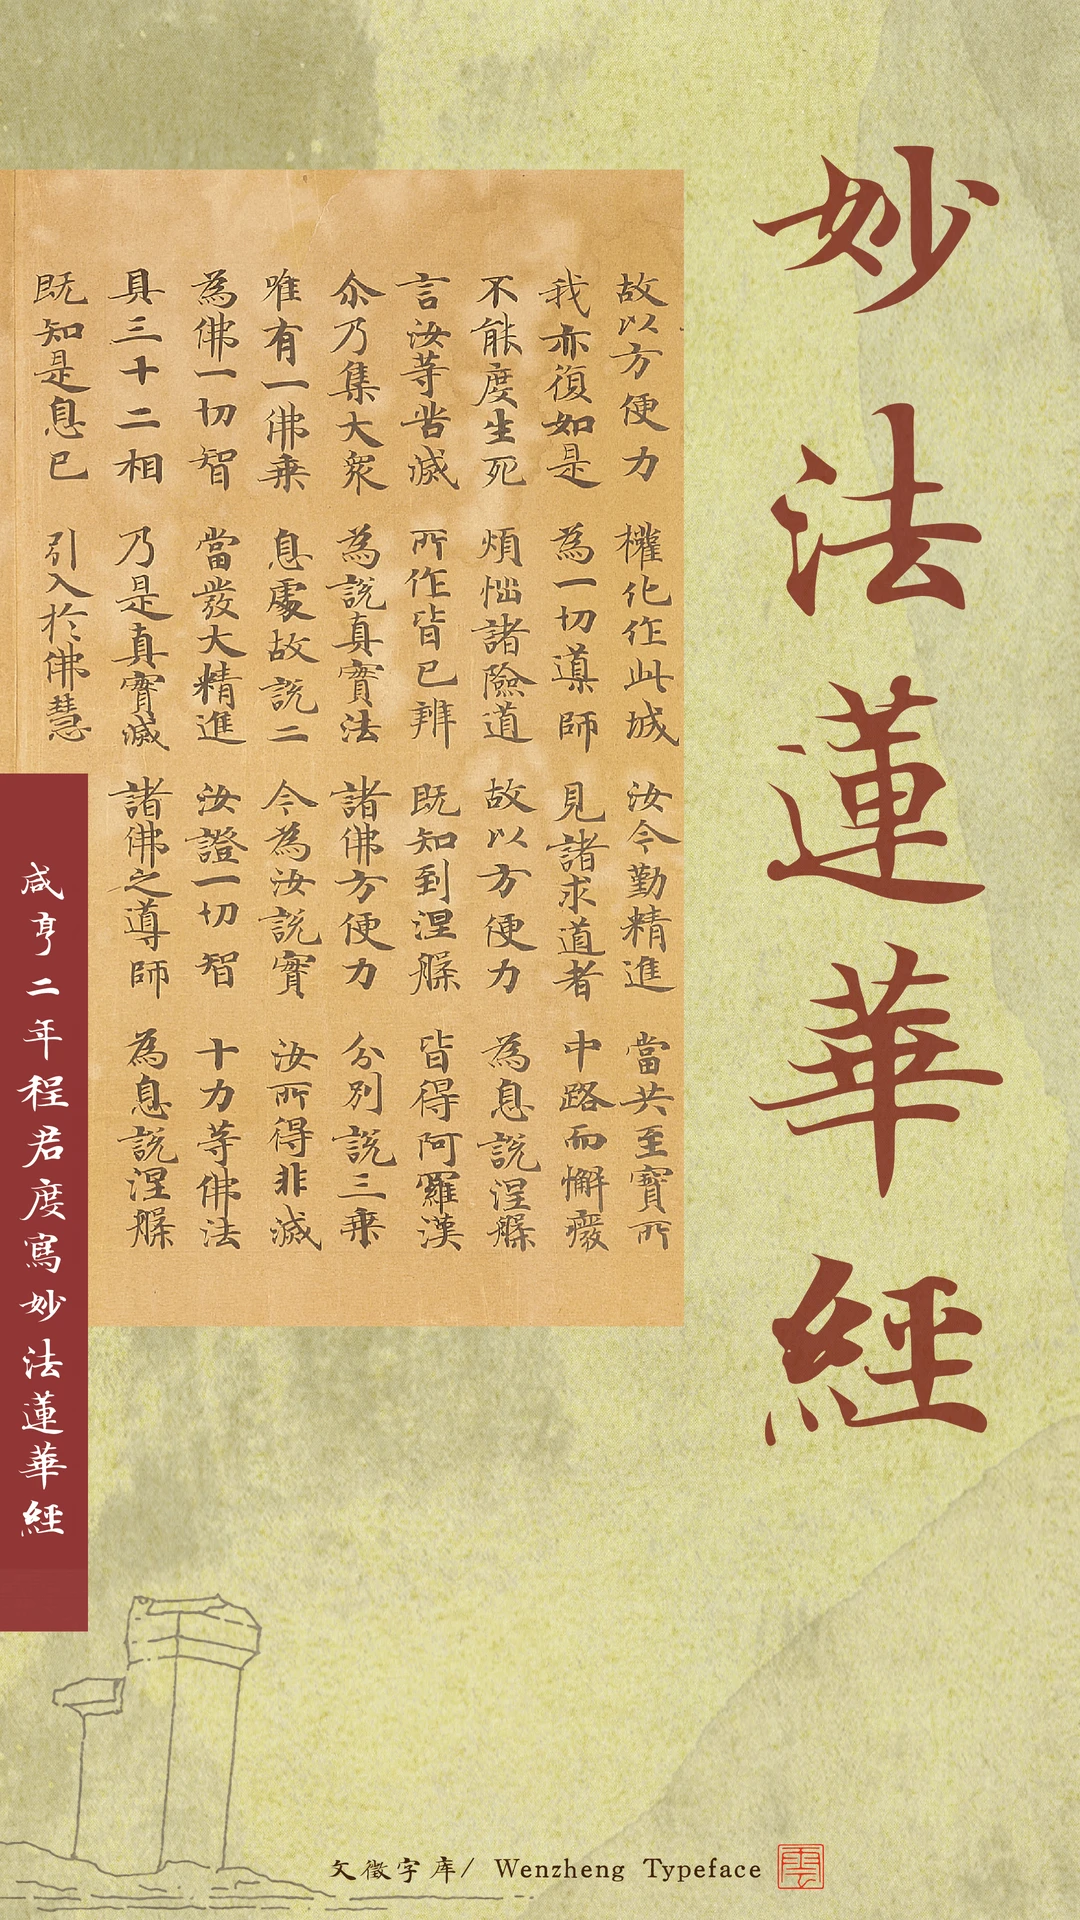 妙法蓮華經
故以方便力 權化作此城 汝今勤精進 當共至寶所
我亦復如是 為一切導師 見諸求道者 中路而懈癈
不能度生死 煩惱諸險道 故以方便力 為息說涅槃
言汝等苦滅 所作皆已辦 既知到涅槃 皆得阿羅漢
尒乃集大衆 為說真實法 諸佛方便力 分別說三乘
唯有一佛乘 息處故說二 今為汝說實 汝所得非滅
為佛一切智 當發大精進 汝證一切智 十力等佛法
具三十二相 乃是真實滅 諸佛之導師 為息說涅槃
既知是息已 引入於佛慧
咸亨二年程君度寫妙法蓮華經
文徵字库/ Wenzheng Typeface